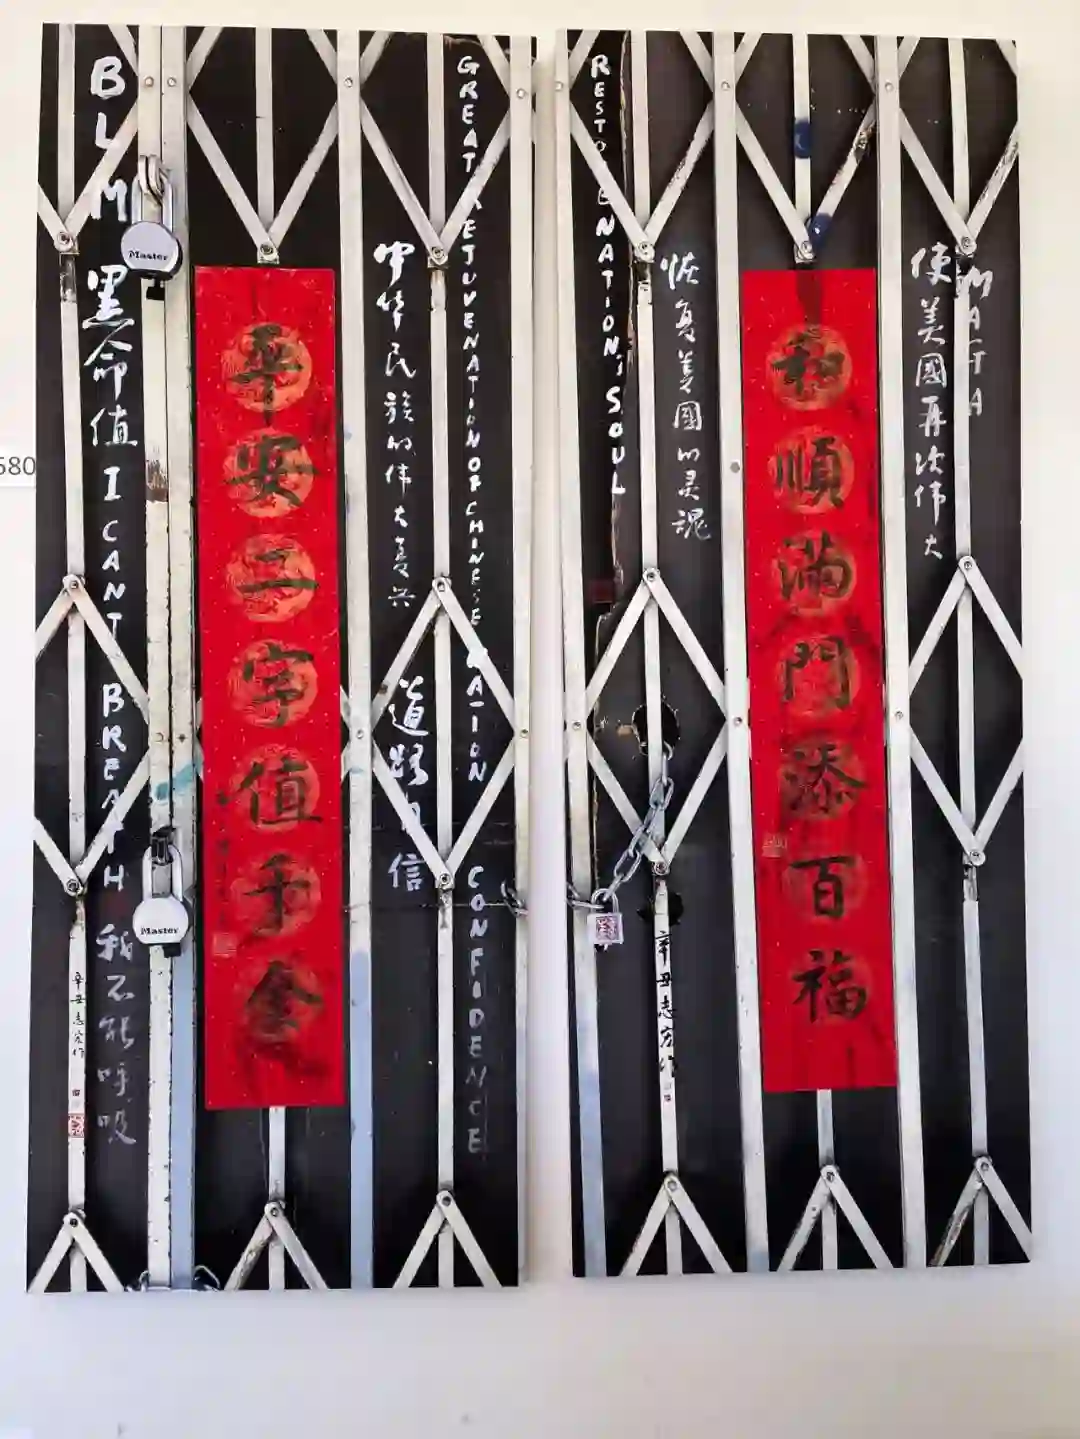 BLM
黑命值
I CANT BREATH
我不能呼吸
辛丑志宏作
Master
Master
平安二字值千金
中华民族的伟大复兴
道路自信
GREAT REJUVENATION OF CHINESE NATION
CONFIDENCE
RESTORE NATION'S SOUL
恢复美國的灵魂
辛丑志宏作
和順满門添百福
使美國再次伟大
MAGA
680